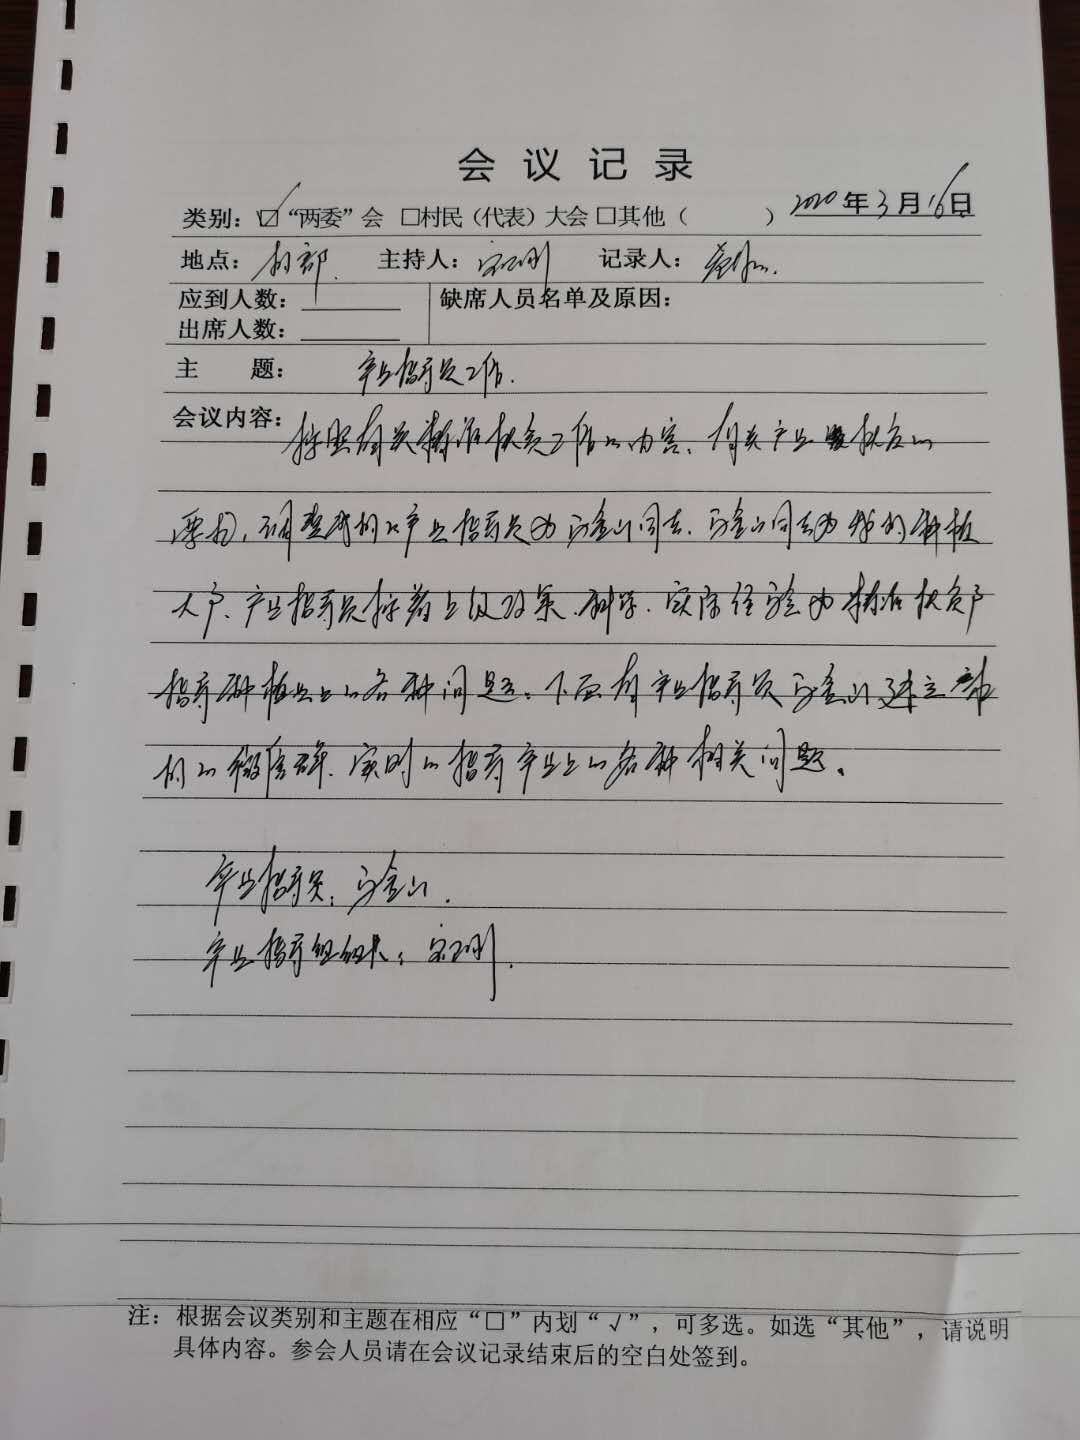 会议记录
类别：☑“两委”会 □村民（代表）大会 □其他（ ） 2020年3月16日
地点：村部. 主持人： 记录人：
应到人数： 缺席人员名单及原因：
出席人数：
主 题： 产业指导员工作.
会议内容： 按照有关精准扶贫工作的内容、有关产业扶贫的
要求，调整我村的产业指导员为马金山同志.马金山同志为我村种植
大户、产业指导员按着上级政策、科学、实际经验为精准扶贫户
指导种植业上的各种问题：下面有产业指导员马金山建立本
村的微信群、实时的指导产业上的各种相关问题。
产业指导员：马金山.
产业指导组组长：
注：根据会议类别和主题在相应“□”内划“√”，可多选。如选“其他”，请说明
具体内容。参会人员请在会议记录结束后的空白处签到。